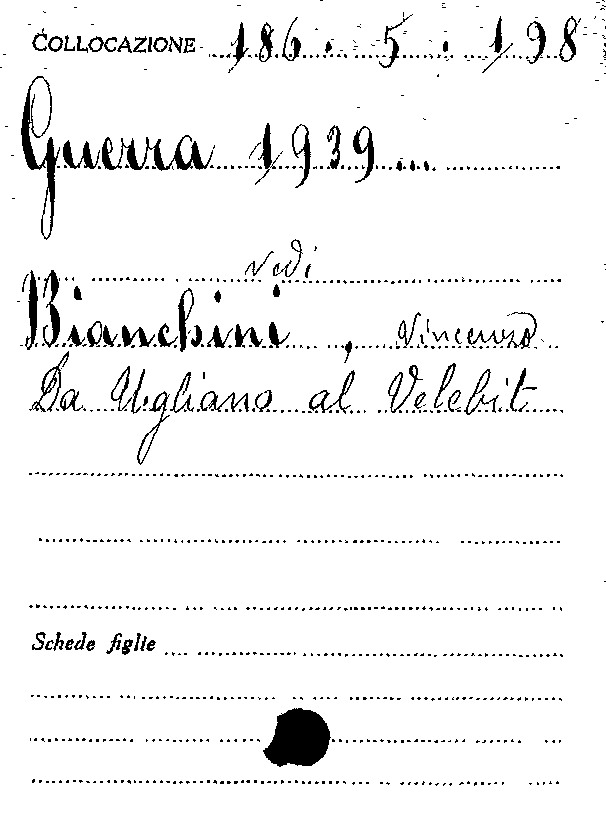 COLLOCAZIONE 186.5.198
Guerra 1939...
vedi
Bianchini, Vincenzo
Da Ugliano al Velebit
Schede figlie